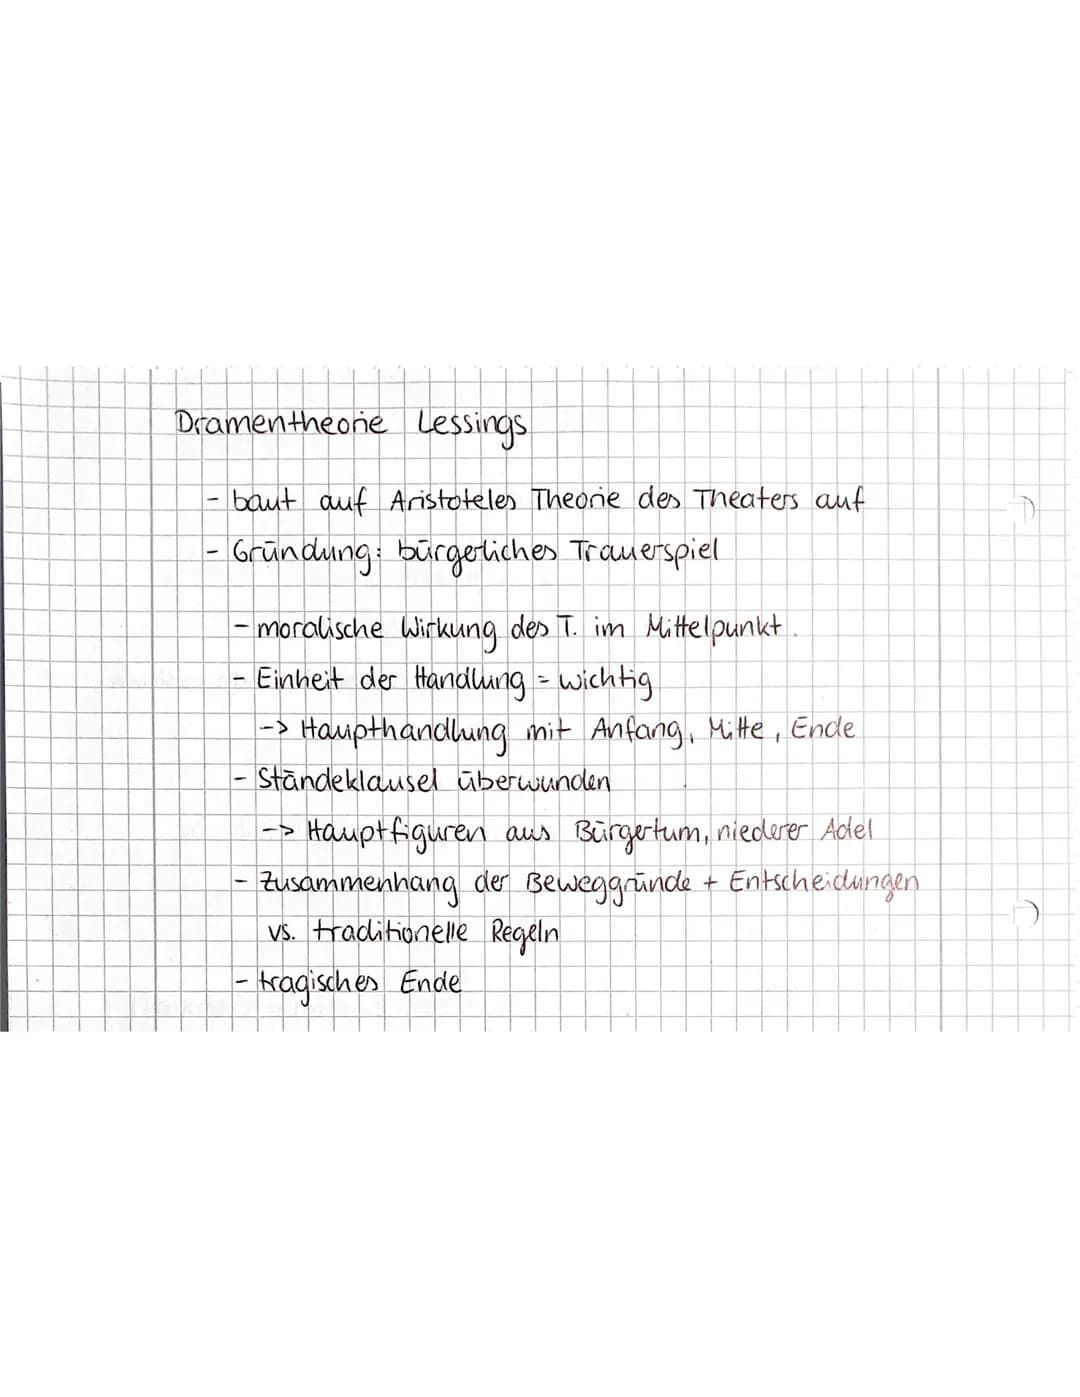 Dramentheorie Lessings
- baut auf Aristoteles Theorie des Theaters auf
- Gründung: bürgerliches Trauerspiel
- moralische Wirkung des T. im Mittelpunkt.
- Einheit der Handlung = wichtig
-> Haupthandlung mit Anfang, Mitte, Ende
- Ständeklausel überwunden
-> Hauptfiguren aus Bürgertum, niederer Adel
- Zusammenhang der Beweggründe + Entscheidungen
vs. traditionelle Regeln
- tragisches Ende